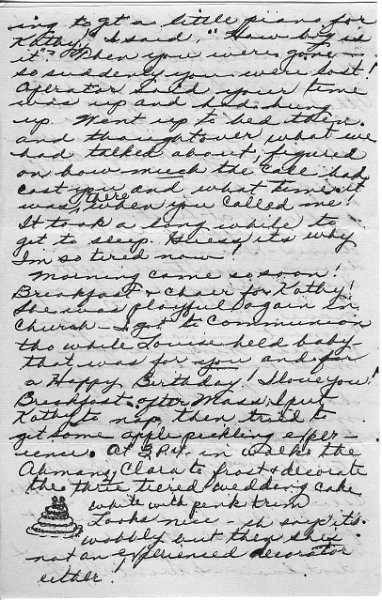 ing to get a little piano for
Kathy! I said, "How big is
it"? Then you were gone –
so suddenly you were lost!
Operator said your time
was up and had hung
up. Went up to bed then
and thought over what we
had talked about, figured
on how much the call had
cost you and what time it
was there when you called me!
It took a long while to
get to sleep. Guess, its why
I'm so tired now.
Morning came so soon!
Breakfast & chair for Kathy!
She was playful again in
Church – I got to Communion
tho while Louise held baby –
that was for you and for
a Happy Birthday! I love you!
Breakfast after Mass I put
Kathy to nap, then tried to
get some apple peeling exper-
ience. At 3 P.M. in walks the
Clara to frost & decorate
the three tiered wedding cake
white with pink trim
Looks nice – sh says its
wobbly but then she's
not an experienced decorator
either!